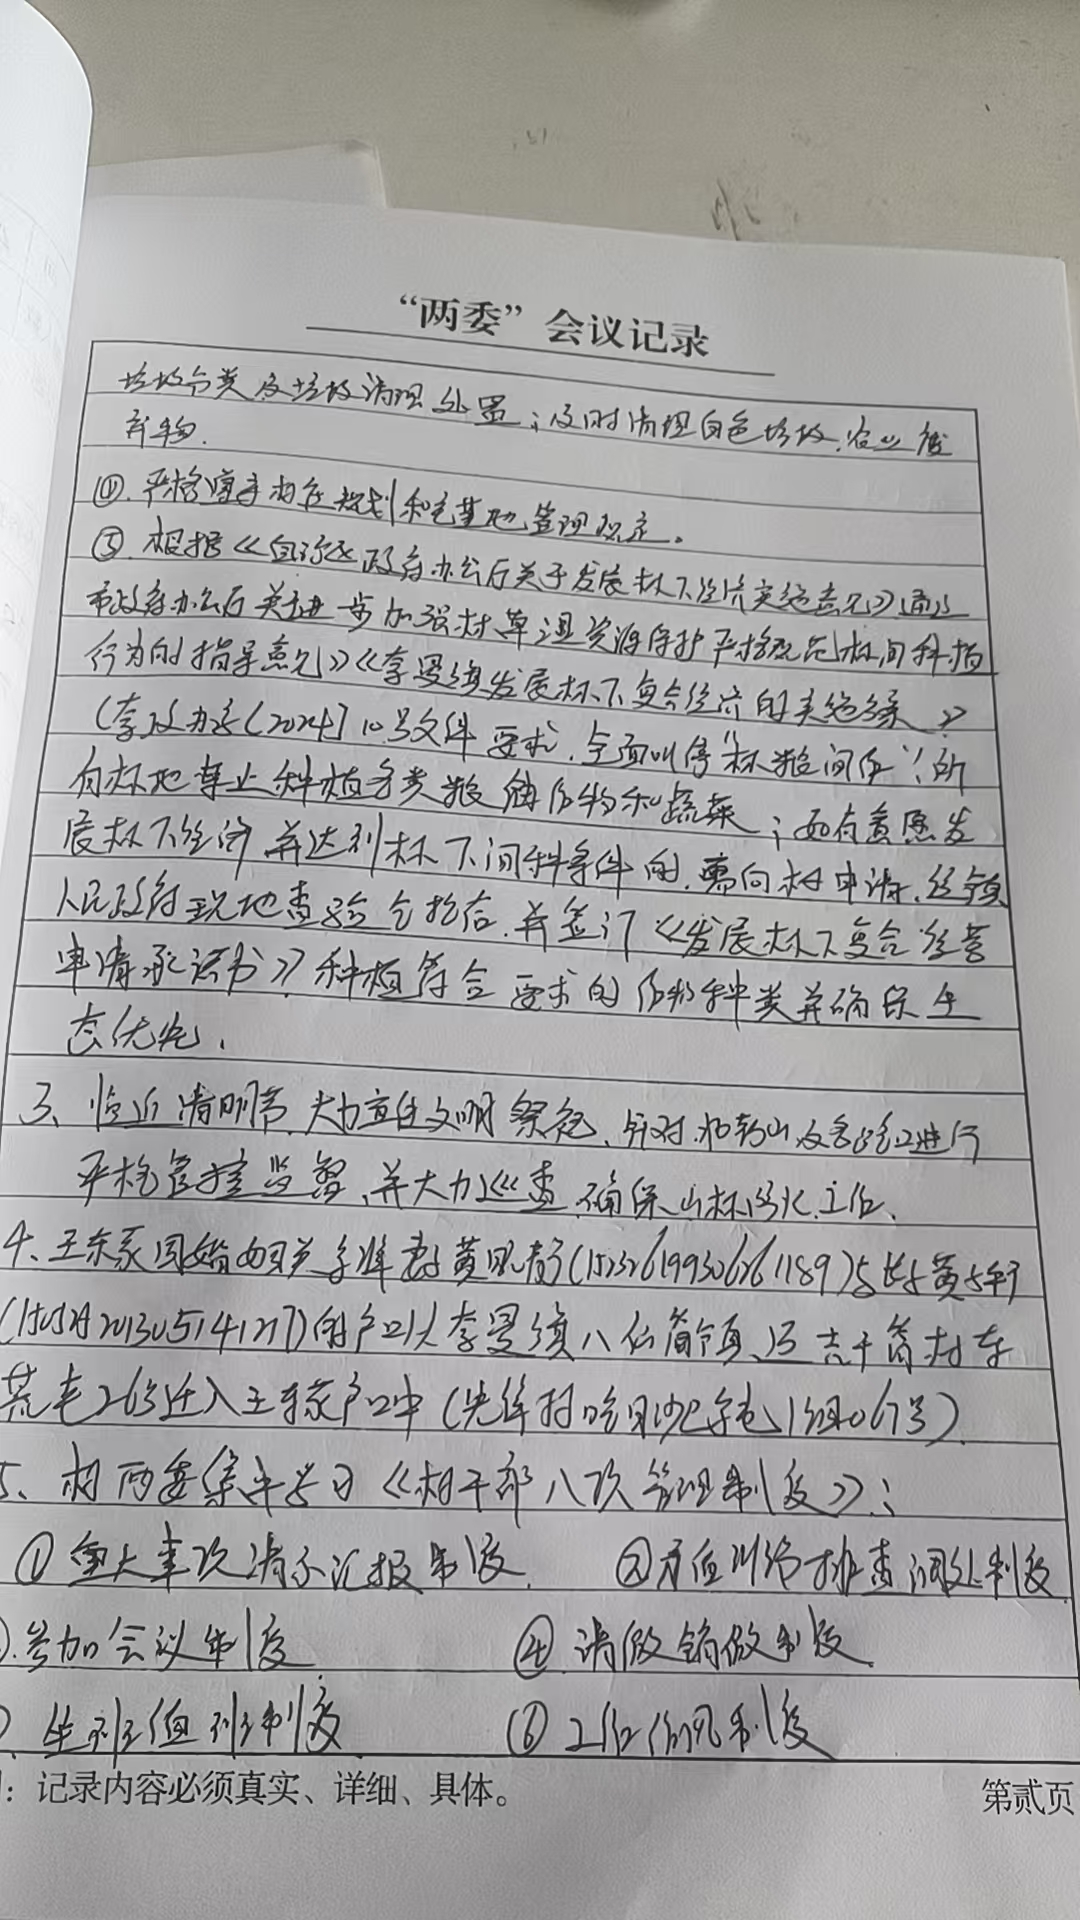 “两委”会议记录
垃圾分类及垃圾清理处置；及时清理白色垃圾、农业废
弃物.
④. 严格遵守村庄规划和宅基地管理规定。
⑤. 根据《自治区政府办公厅关于发展林下经济实施意见》通辽
市政府办公厅关于进一步加强林草湿资源保护严格规范林间种植
行为的指导意见》《奈曼旗发展林下复合经济的实施方案》
(奈政办字〔2024〕10号文件要求，全面叫停“林粮间作”；所
有林地禁止种植各类粮 作物和蔬菜；如有意愿发
展林下经济并达到林下间种条件的，需向村申请，经镇
人民政府现地查验合格后，并签订《发展林下复合经营
申请承诺书》种植符合要求的作物种类并确保生
态优先.
3、临近清明节，大力宣传文明祭祀、针对 山及各路口进行
严格管控监督，并大力巡查，确保山林防火工作、
4、王东 因婚姻关系将妻子黄 (152326199306261189)与长子黄
( 201305141217)的户口从奈曼旗八仙筒镇
26号迁入王东 户口中( 村哈日沙巴尔屯1组067号).
5、村两委集中学习《村干部八项管理制度》：
① 重大事项请示汇报制度. ②矛盾纠纷排查调处制度
.参加会议制度 ④.请假销假制度
坐班值班制度 ⑥ 工作作风制度
：记录内容必须真实、详细、具体。
第贰页